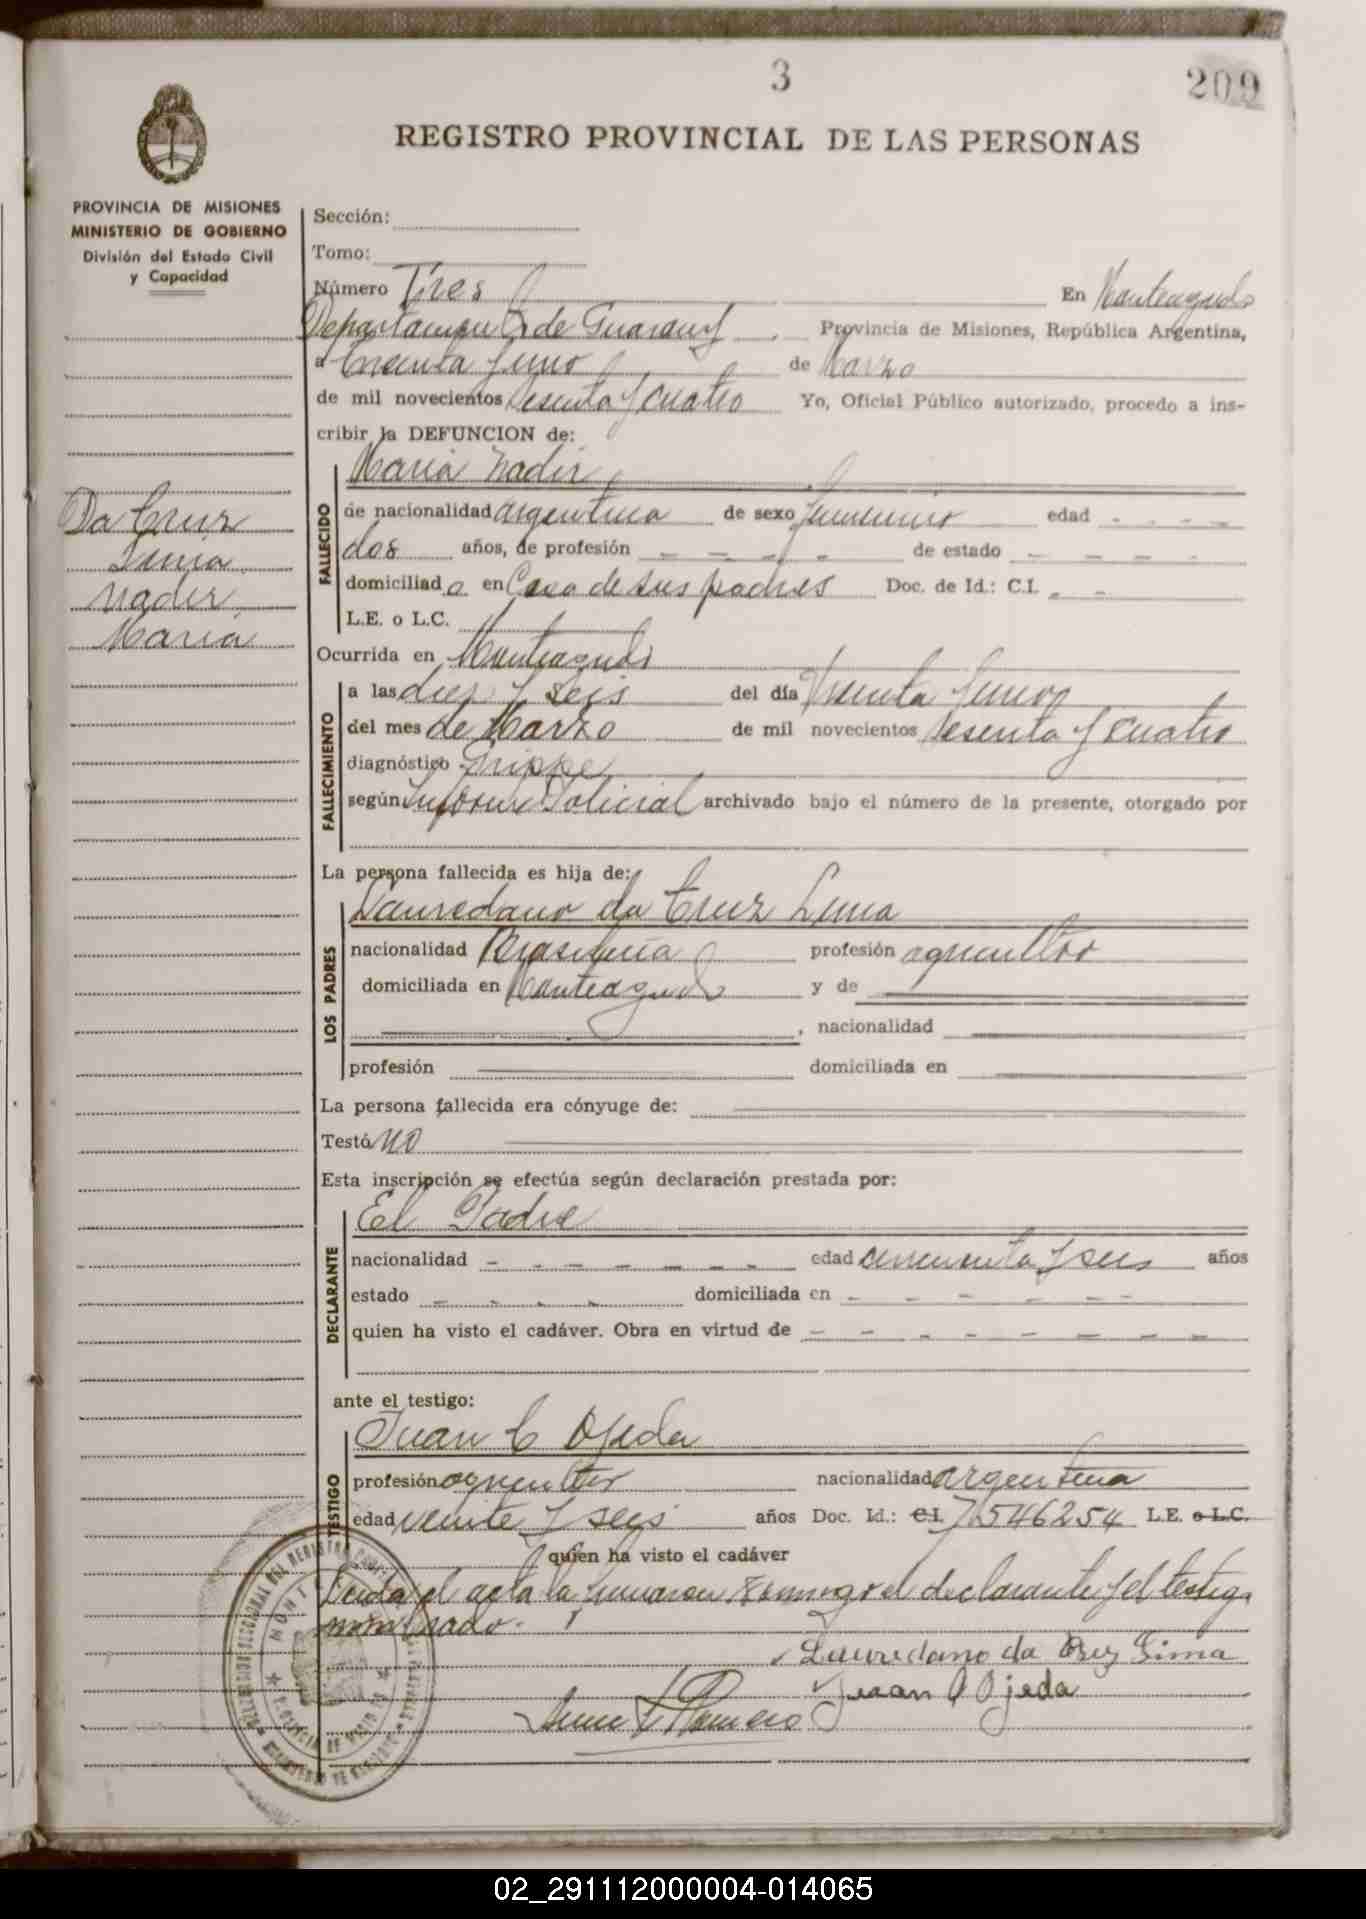 3
209
REGISTRO PROVINCIAL DE LAS PERSONAS
PROVINCIA DE MISIONES
MINISTERIO DE GOBIERNO
División del Estado Civil
y Capacidad
Da Cruz
Lima
Nadir
Maria
Sección:
Tomo:
Número Tres En Monteagudo
Departamento de Guarany Provincia de Misiones, República Argentina,
a treinta y uno de Marzo
de mil novecientos sesenta y cuatro Yo, Oficial Público autorizado, procedo a ins-
cribir la DEFUNCION de:
Maria Nadir
FALLECIDO
de nacionalidad argentina de sexo femenino edad - - - -
dos años, de profesión - - - - de estado - - - -
domiciliad a en Casa de sus padres Doc. de Id.: C.I. - -
L.E. o L.C.
Ocurrida en Monteagudo
FALLECIMIENTO
a las diez y seis del día treinta y uno
del mes de Marzo de mil novecientos sesenta y cuatro
diagnóstico Grippe
según Informe Policial archivado bajo el número de la presente, otorgado por
La persona fallecida es hija de:
LOS PADRES
Lauredano da Cruz Lima
nacionalidad Brasileña profesión agricultor
domiciliada en Monteagudo y de
, nacionalidad
profesión domiciliada en
La persona fallecida era cónyuge de:
Testó no
Esta inscripción se efectúa según declaración prestada por:
DECLARANTE
El Padre
nacionalidad - - - - - - - edad cincuenta y seis años
estado - - - - domiciliada en - - - - - -
quien ha visto el cadáver. Obra en virtud de - - - - - - - -
ante el testigo:
TESTIGO
Juan C Ojeda
profesión agricultor nacionalidad argentina
edad veinte y seis años Doc. Id.: C.I. 7.546254 L.E. o L.C.
quien ha visto el cadáver
Leida el acta la firmaron conmigo el declarante y el testigo
nombrado.
Lauredano da Cruz Lima
Juan C Ojeda
Romero
02_291112000004-014065